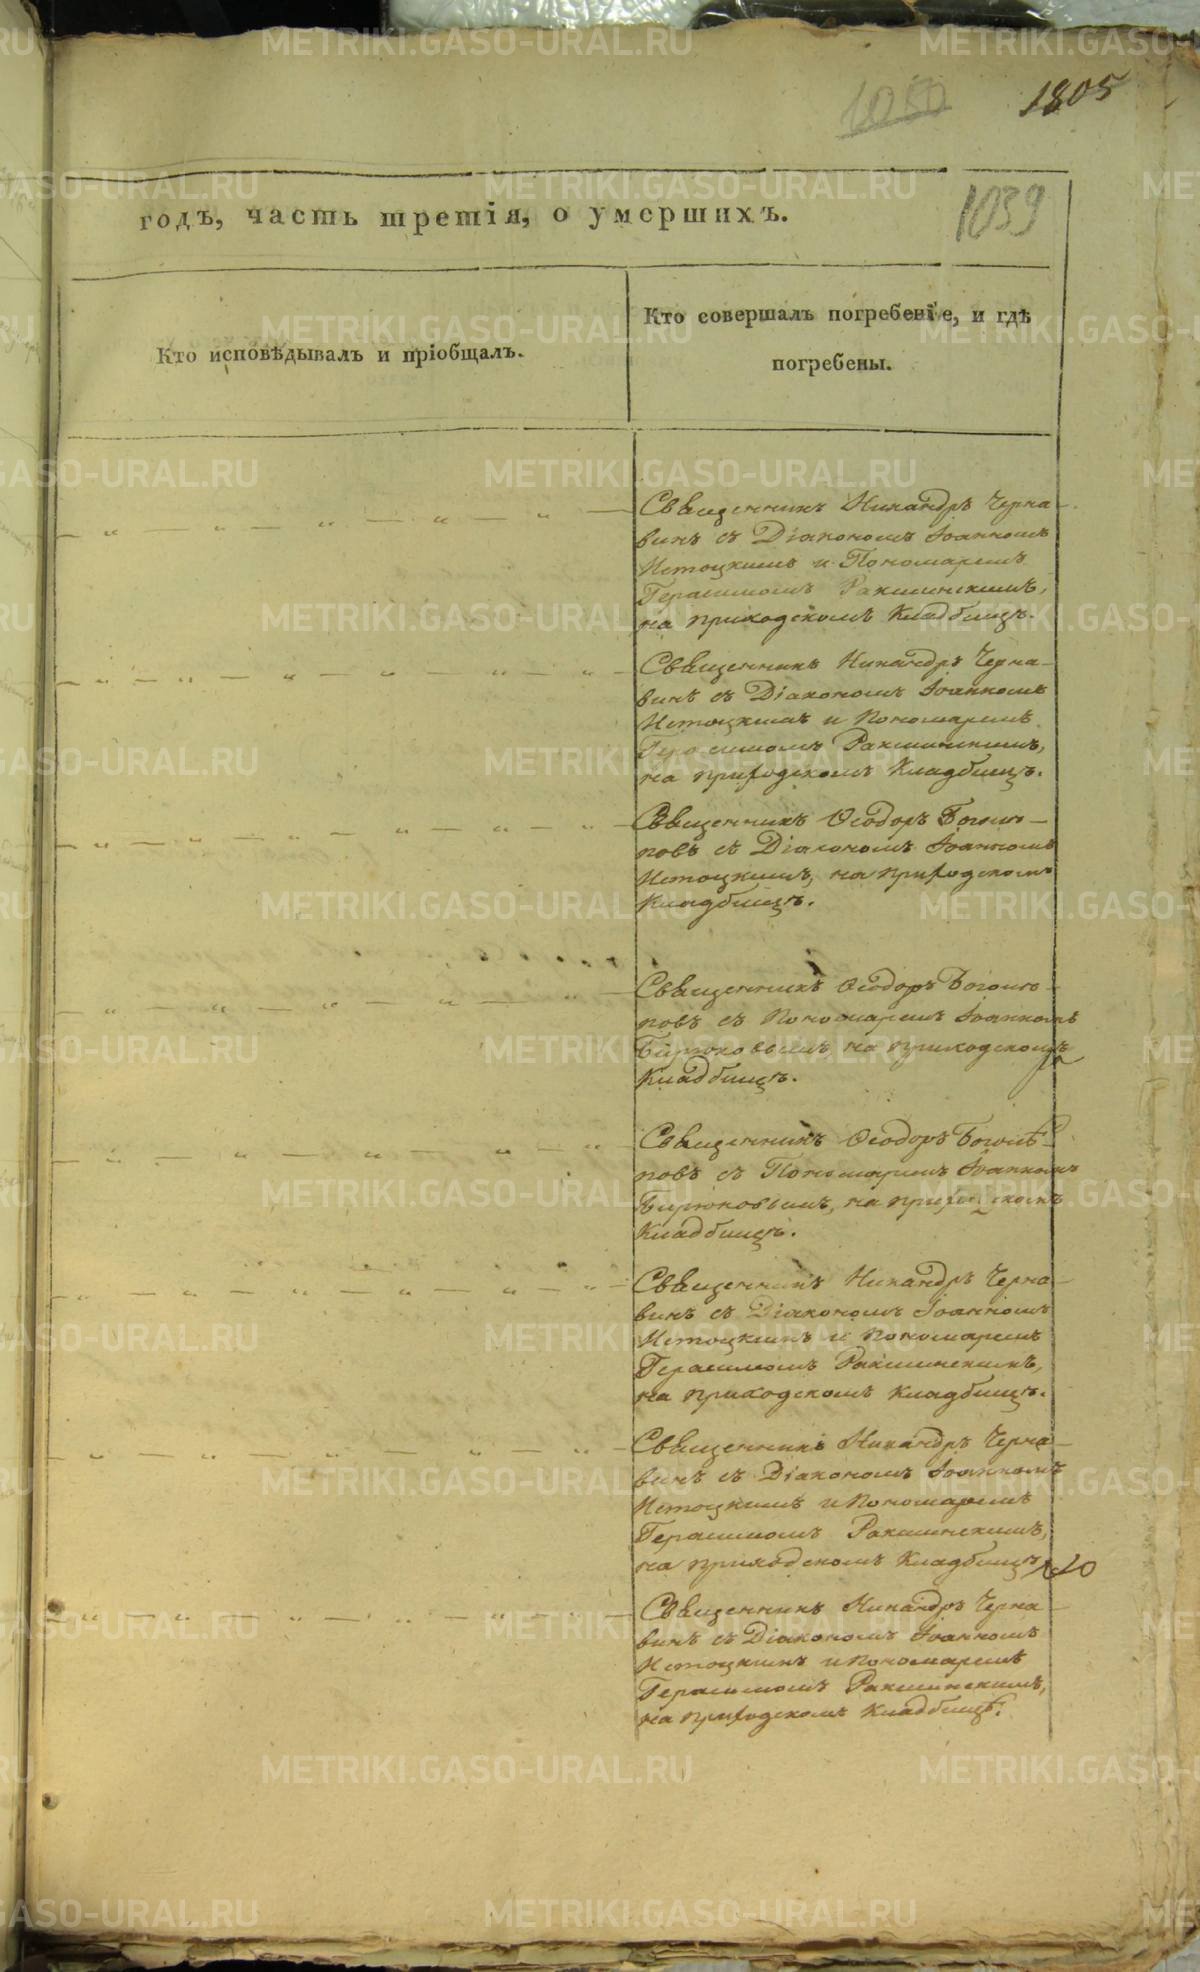 1050
1805
1039
годъ, часть третія, о умершихъ.
Кто исповѣдывалъ и пріобщалъ.
Кто совершалъ погребеніе, и гдѣ
погребены.
Священникъ Никандръ Черна-
винъ съ Діакономъ Іоанномъ
Истоцкимъ и Пономаремъ
Герасимомъ Ракшинскимъ,
на приходскомъ Кладбищѣ.
Священникъ Никандръ Черна-
винъ съ Діакономъ Іоанномъ
Истоцкимъ и Пономаремъ
Герасимомъ Ракшинскимъ,
на приходскомъ Кладбищѣ.
Священникъ Ѳеодоръ Боголю-
повъ съ Діакономъ Іоанномъ
Истоцкимъ, на приходскомъ
Кладбищѣ.
Священникъ Ѳеодоръ Боголю-
повъ съ Пономаремъ Іоанномъ
Бирюковымъ на приходскомъ
Кладбищѣ.
Священникъ Ѳеодоръ Боголѣ-
повъ съ Пономаремъ Іоанномъ
Бирюковымъ, на приходскомъ
Кладбищѣ.
Священникъ Никандръ Черна-
винъ съ Діакономъ Іоанномъ
Истоцкимъ и Пономаремъ
Герасимомъ Ракшинскимъ,
на приходскомъ Кладбищѣ.
Священникъ Никандръ Черна-
винъ съ Діакономъ Іоанномъ
Истоцкимъ и Пономаремъ
Герасимомъ Ракшинскимъ,
на приходскомъ Кладбищѣ
Священникъ Никандръ Черна-
винъ съ Діакономъ Іоанномъ
Истоцкимъ и Пономаремъ
Герасимомъ Ракшинскимъ,
на приходскомъ Кладбищѣ.
METRIKI.GASO-URAL.RU